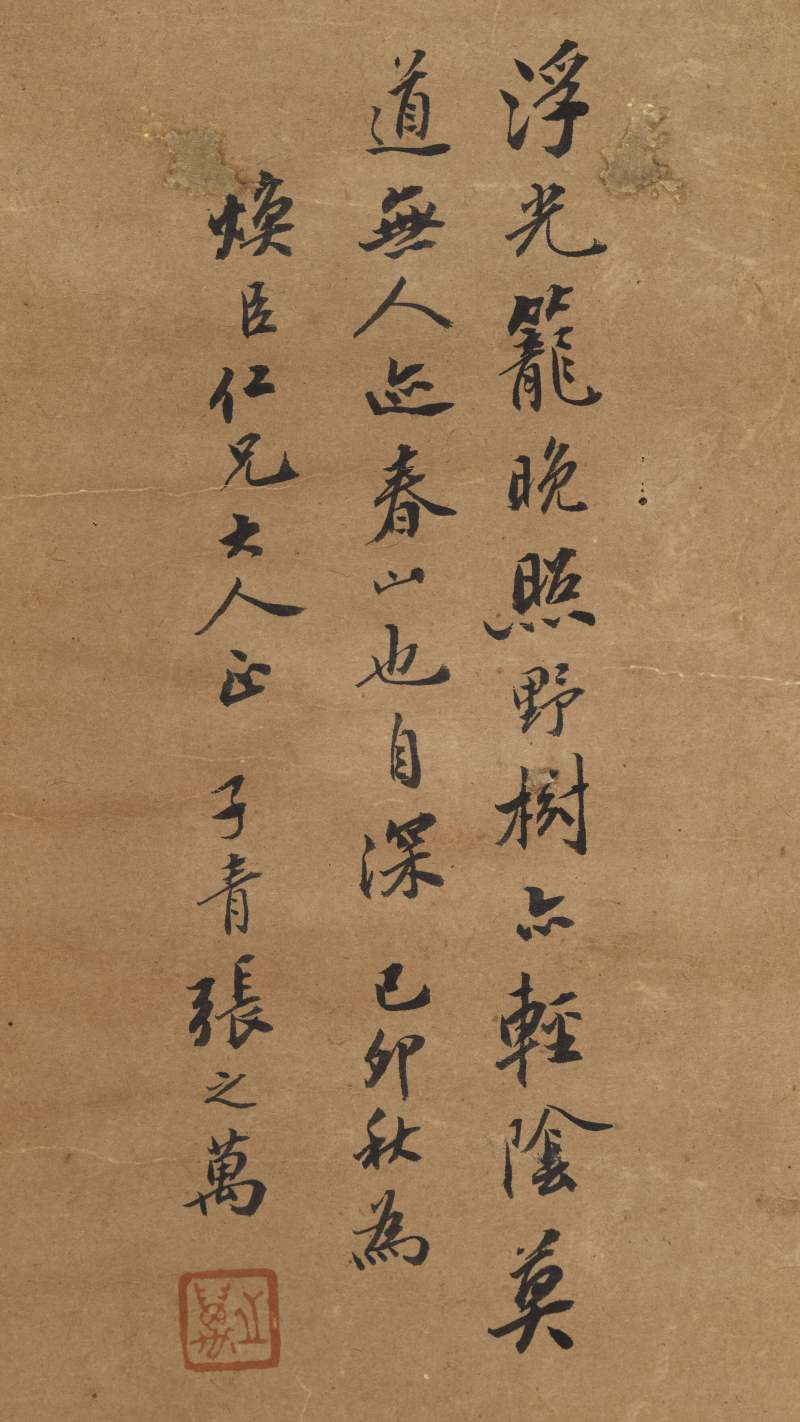 浮光籠晚照野樹亦輕陰莫
道無人迹春山也自深 己卯秋為
煥臣仁兄大人正 子青張之萬
之萬